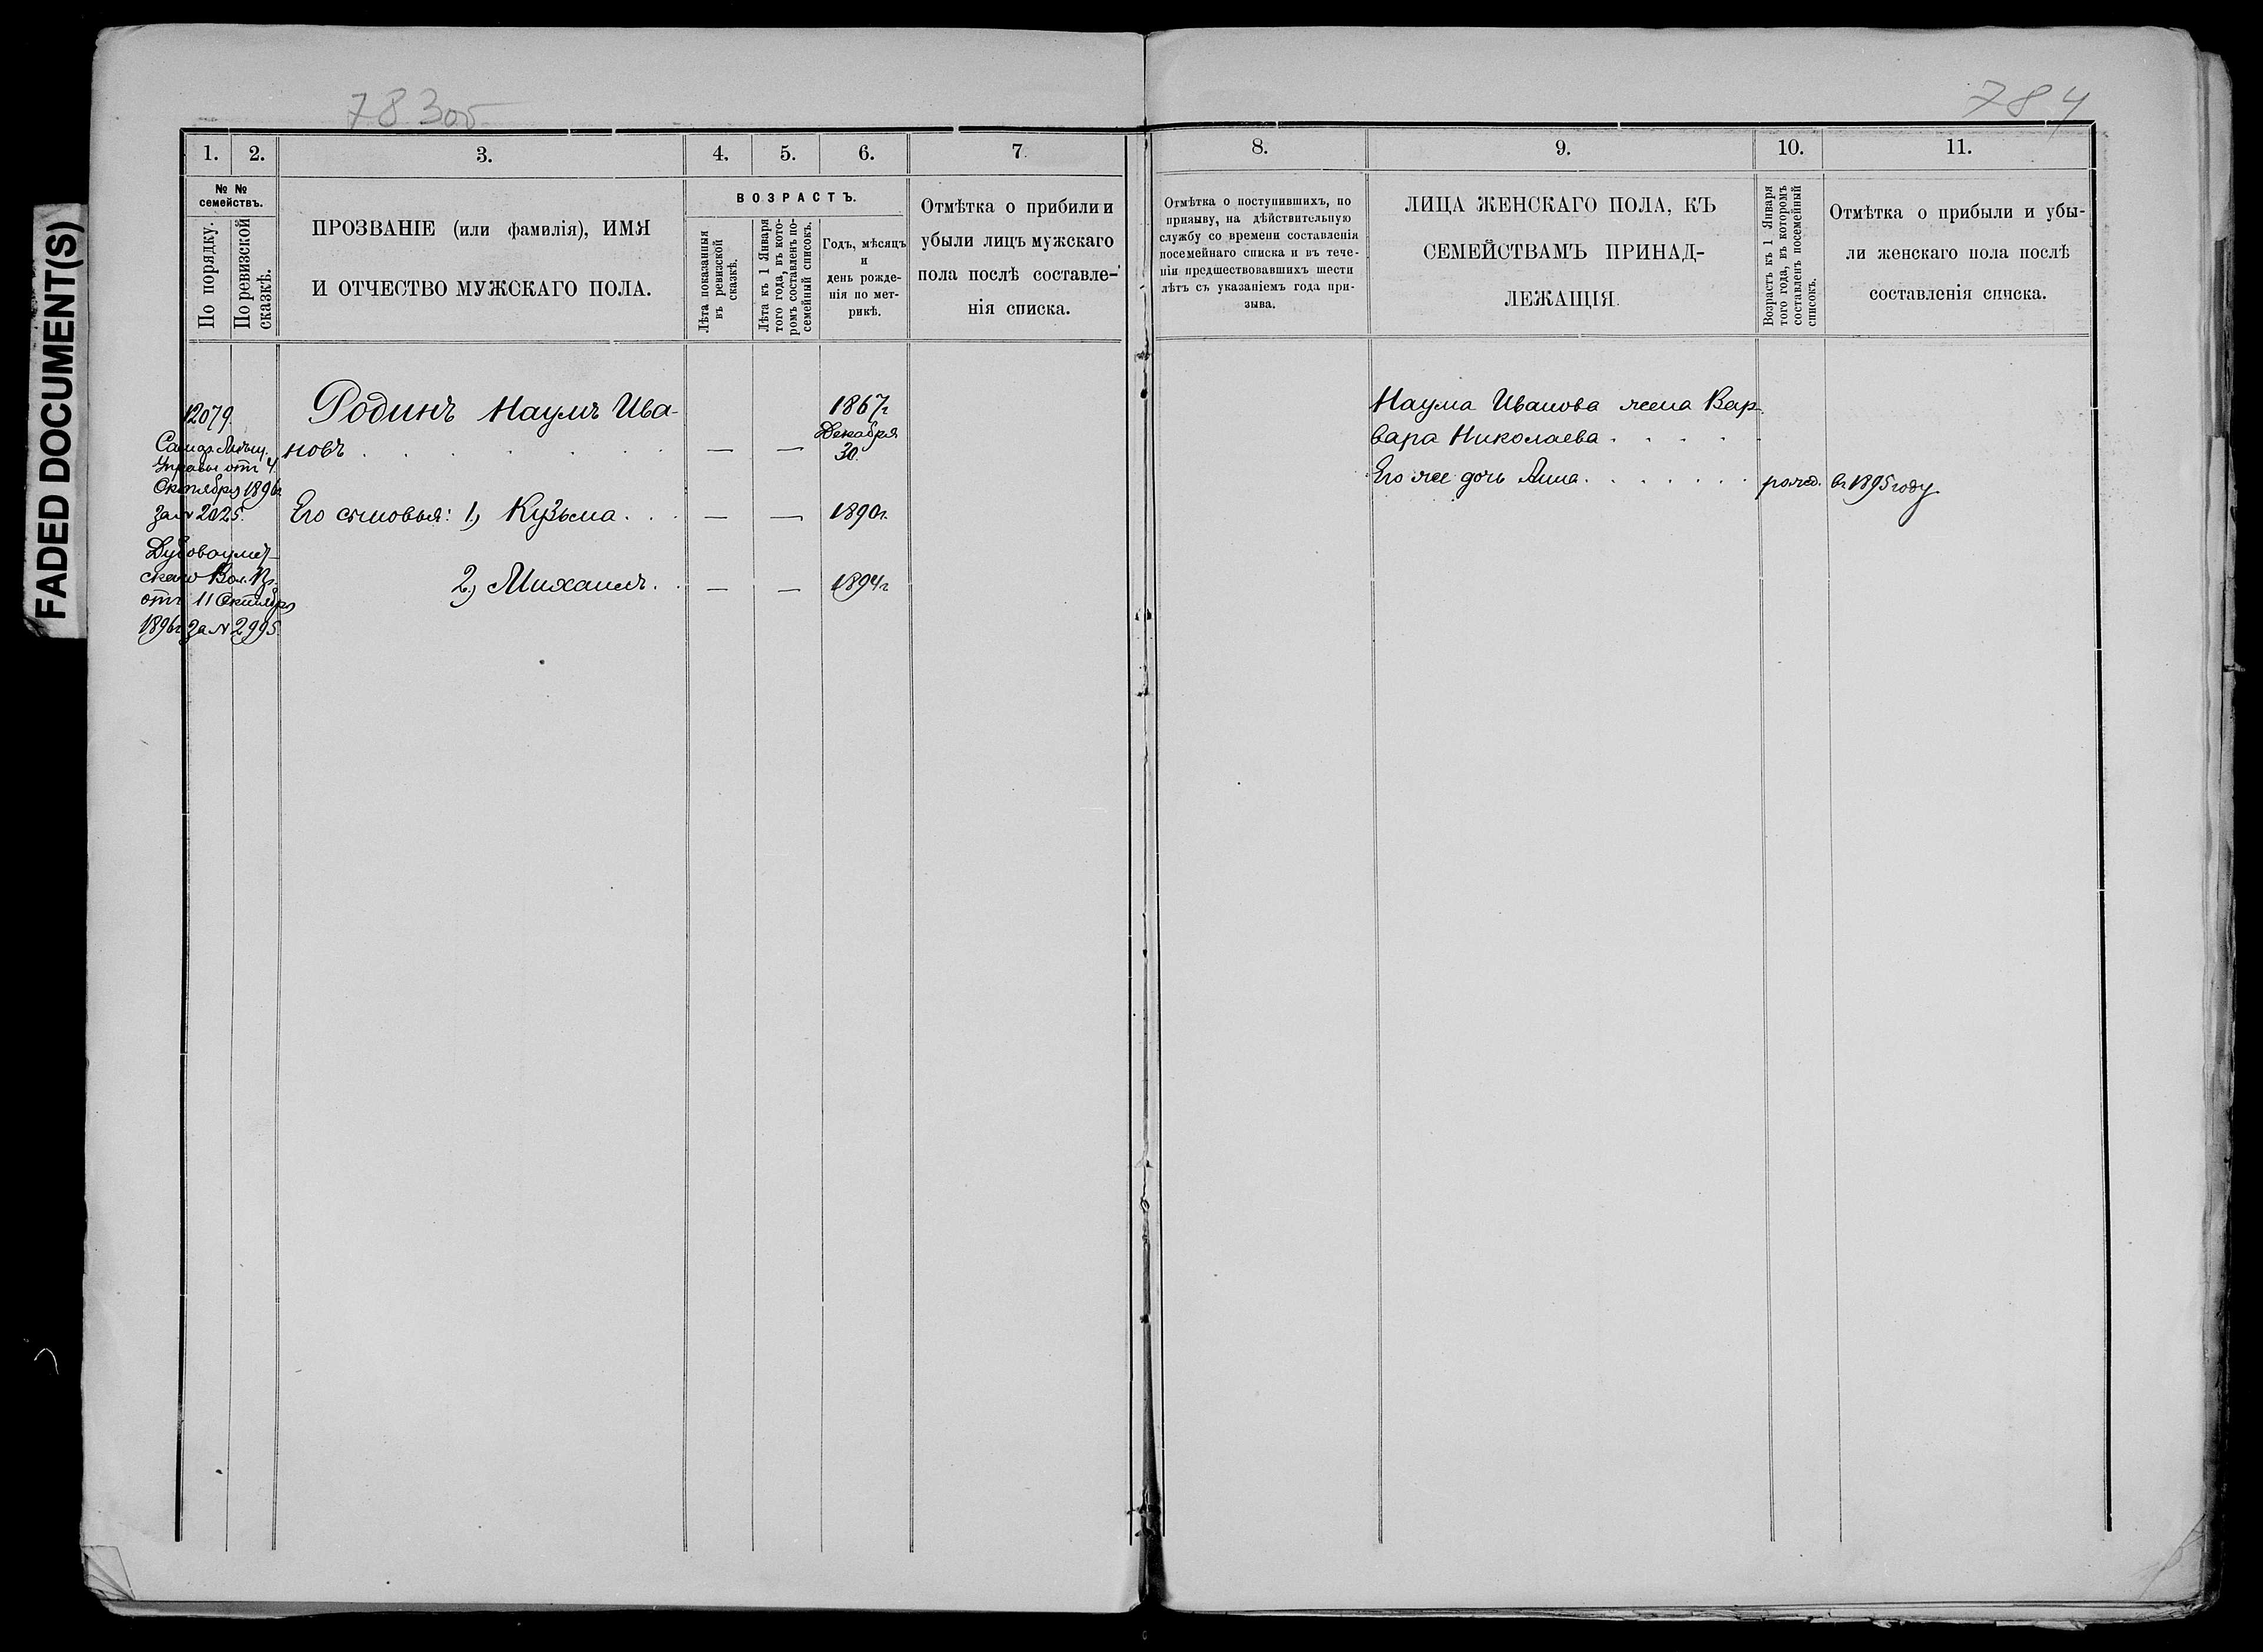 FADED DOCUMENT(S)
783об
784
1. 2. 3. 4. 5. 6. 7.
№ №
семействъ.
По порядку.
По ревизской
сказкѣ.
ПРОЗВАНІЕ (или фамилія), ИМЯ
И ОТЧЕСТВО МУЖСКАГО ПОЛА.
ВОЗРАСТЪ.
Лѣта показанныя
въ ревизской
сказкѣ.
Лѣта къ 1 Января
того года, въ кото-
ромъ составленъ по-
семейный списокъ.
Годъ, мѣсяцъ
и
день рожде-
нія по мет-
рикѣ.
Отмѣтка о прибили и
убыли лицъ мужскаго
пола послѣ составле-
нія списка.
12079.
Самар. Мѣщ.
Управы отъ 4
Октября 1896г.
за № 2025.
Дубовоумет-
скаго Вол. Пр.
отъ 11 Октября
1896г. за № 2995
Родинъ Наумъ Ива-
новъ . . . . . . — — 1867г.
Декабря
30.
Его сыновья: 1, Кузьма . . — — 1890г.
2, Михаилъ . . — — 1894г.
8. 9. 10. 11.
Отмѣтка о поступившихъ, по
призыву, на дѣйствительную
службу со времени составленія
посемейнаго списка и въ тече-
ніи предшествовавшихъ шести
лѣтъ съ указаніемъ года при-
зыва.
ЛИЦА ЖЕНСКАГО ПОЛА, КЪ
СЕМЕЙСТВАМЪ ПРИНАД-
ЛЕЖАЩІЯ.
Возрастъ къ 1 Января
того года, въ которомъ
составленъ посемейный
списокъ.
Отмѣтка о прибыли и убы-
ли женскаго пола послѣ
составленія списка.
Наума Иванова жена Вар-
вара Николаева . . . . .
Его же дочь Анна . . . . . . . рожд. въ 1895 году.